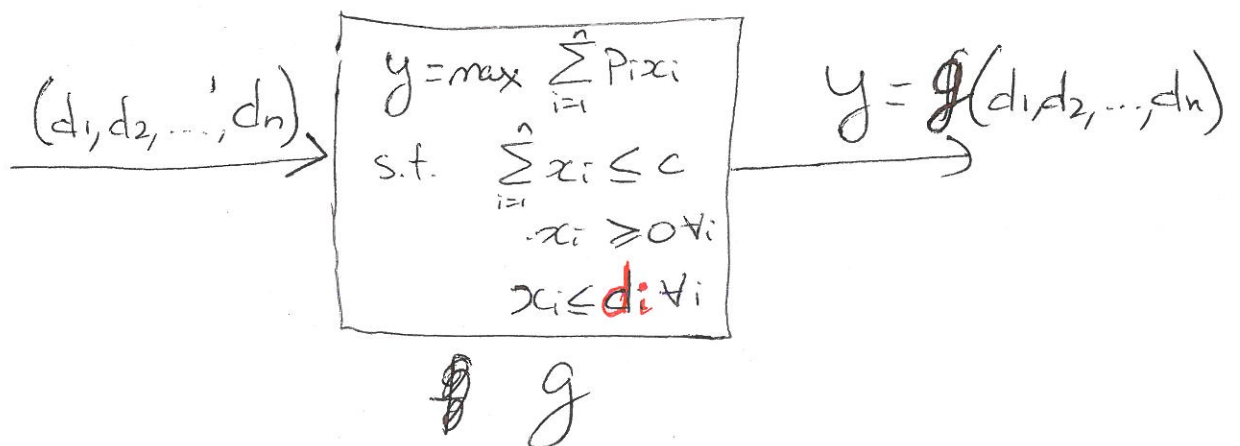 (d₁,d₂,...,dₙ)
y = max ∑ⁿᵢ₌₁ Pᵢxᵢ
s.t. ∑ⁿᵢ₌₁ xᵢ ≤ c
xᵢ ≥ 0 ∀i
xᵢ ≤ dᵢ ∀i
y = g(d₁,d₂,...,dₙ)
g